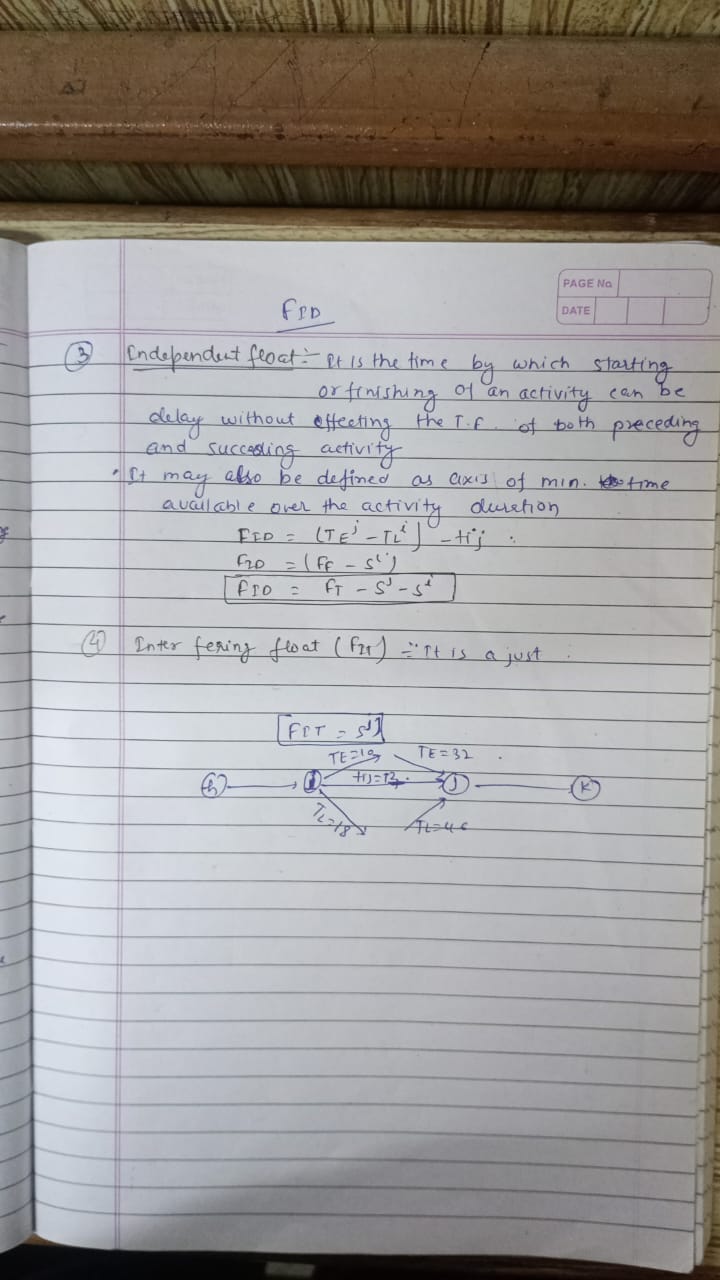 PAGE No.
DATE
FID
③ Independent float :- It is the time by which starting
or finishing of an activity can be
delay without effecting the T.F. of both preceding
and succeding activity
• It may also be defined as axis of min. time
available over the activity duration
FID = (TE^j - TL^i) - tij
FID = (FF - S^i)
FID = FT - S^j - S^i
④ Inter fering float (FIT) :- It is a just
FIT = S^j
TE=10 TE=32
h i tij=13 j k
TL=18 TL=46